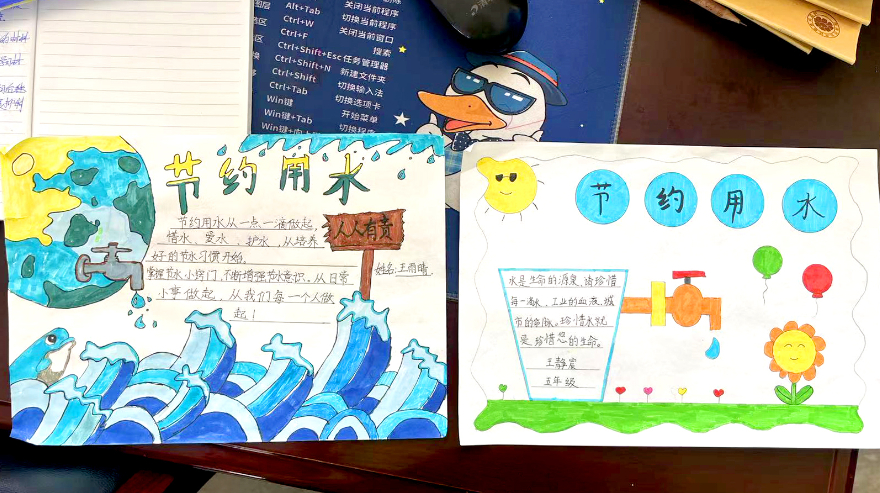 Alt+Tab 关闭当前程序
Ctrl+W 切换当前程序
Ctrl+F 关闭当前窗口
搜索
Ctrl+Shift+Esc 任务管理器
Ctrl+Shift+N 新建文件夹
Ctrl+Shift 切换输入法
Ctrl+Tab 切换选项卡
Win键 开始菜单
Win+Tab 切换程序
Win键+向
节约用水
节约用水从一点一滴做起,
惜水、爱水、护水,从培养
好的节水习惯开始,
掌握节水小窍门,不断增强节水意识。从日常
小事做起,从我们每一个人做
起!
人人有责
姓名:王雨晴
节约用水
水是生命的源泉,请珍惜
每一滴水,工业的血液,城
市的命脉。珍惜水就
是珍惜您的生命。
王静宸
五年级